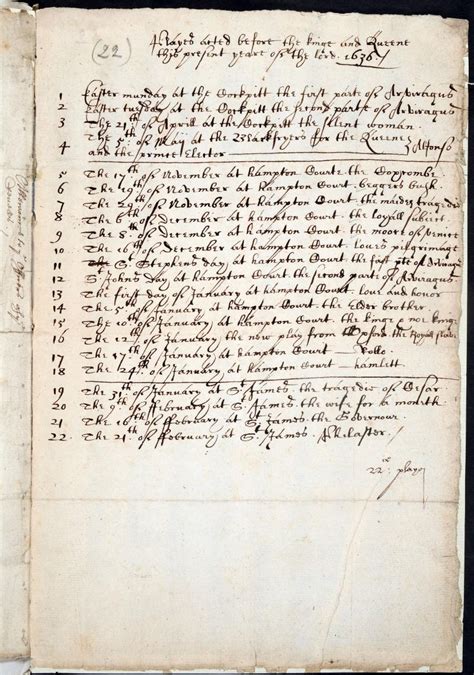 (22)
Playes acted before the kinge and Queene
this present yeare of the lord. 1636
1 Easter munday at the Cockpitt the first parte of Arviragus
2 Easter tuesday at the Cockpitt the second parte of Arviragus
3 The 21th of Aprill at the Cockpitt the silent woman.
4 The 5th of May at the Blackfryers for the Queene Alfonso
and the prince Elector
5 The 17th of November at Hampton Courte the Coxcombe
6 The 19th of November at Hampton Court. beggers bush.
7 The 29th of November at Hampton Court. the maides tragedie
8 The 6th of December at Hampton Court. the loyall subiect.
9 The 8th of December at Hampton Court. the moore of venice
10 The 16th of December at Hampton Court. loves pilgrimage
11 St Stephens day at Hampton Court the first pte of Arviragus
12 St Johns day at Hampton Court the second parte of Arviragus
13 The first day of January at Hampton Court Love and honor
14 The 5th of January at Hampton Court. the Elder brother.
15 The 10th of January at Hampton Court the kinge & noe kinge
16 The 12th of January the new play from Oxford the Royall slave
17 The 17th of January at Hampton Court Rollo.
18 The 24th of January at Hampton Court hamlett
19 The 31th of January at St James. the tragedie of Cesar
20 The 9th of February at St James. the wife for a month.
21 The 16th of February at St James. the Governour.
22. The 21. of February at St James. Philaster.
22 playes